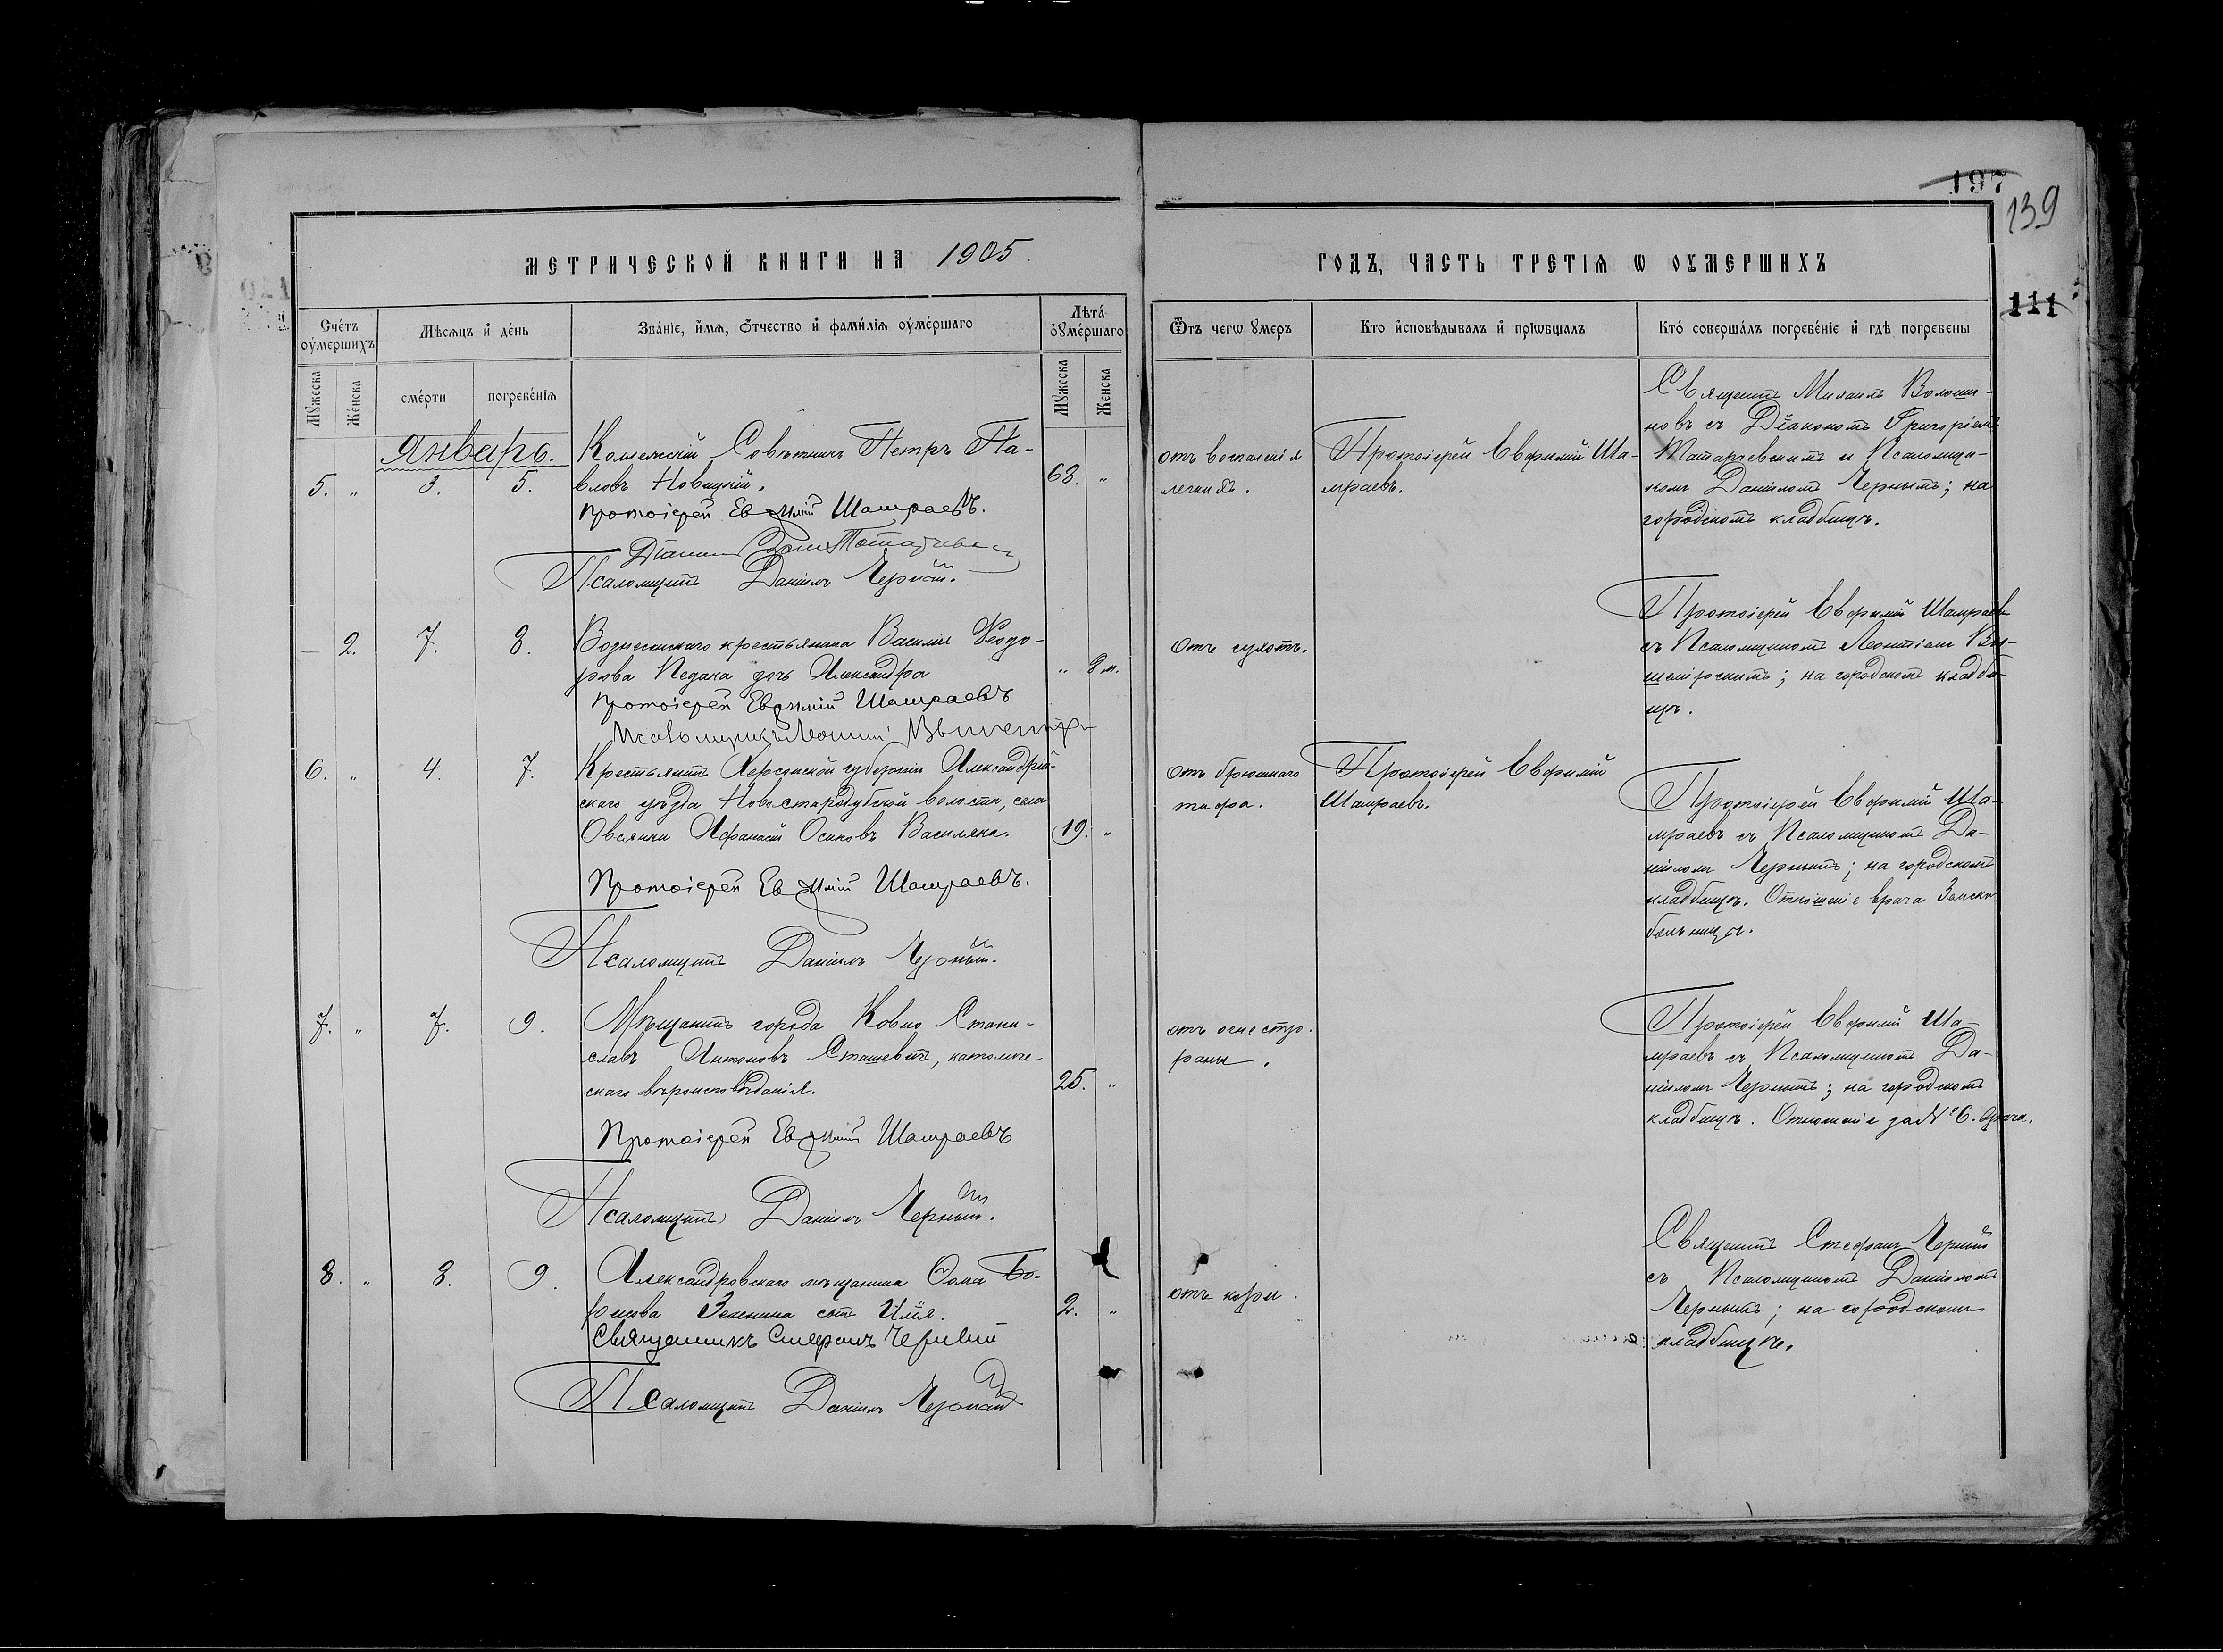 197
139
111
МЕТРИЧЕСКОЙ КНИГИ НА 1905.
ГОДЪ, ЧАСТЬ ТРЕТІѦ Ѡ ОУМЕРШИХЪ
Счетъ оумершихъ
Мѣсѧцъ и день
Званіе, имѧ, отчество и фамиліѧ оумершаго
Лѣта оумершаго
Мужеска
Женска
смерти
погребеніѧ
Мужеска
Женска
Ѿтъ чегѡ умеръ
Кто исповѣдывалъ и пріѡбщалъ
Кто совершалъ погребеніе и гдѣ погребены
Январь.
5. " 3. 5.
Коллежскій Совѣтникъ Петръ Па-
вловъ Новицкій.
63. "
Протоіерей Евфимій Шамраевъ.
Псаломщикъ Даніилъ Черный.
отъ воспаленія
легкихъ.
Протоіерей Евфимій Ша-
мраевъ.
Священникъ Михаилъ Волоши-
новъ съ Діакономъ Григоріемъ
и Псаломщи-
комъ Даніиломъ Чернымъ; на
городскомъ кладбищѣ.
— 2. 7. 8.
Вознесенскаго крестьянина Василія Ѳеодо-
рова Педака дочь Александра
" 8 м.
Протоіерей Евфимій Шамраевъ
Псаломщикъ Леонтій
Отъ сухотъ.
Протоіерей Евфимій Шамраевъ
съ Псаломщикомъ Леонтіемъ Вы-
; на городскомъ кладби-
щѣ.
6. " 4. 7.
Крестьянинъ Херсонской губерніи Александрій-
скаго уѣзда Новостародубской волости, села
Овсянки Афанасій Осиповъ Василяка.
19. "
Протоіерей Евфимій Шамраевъ.
Псаломщикъ Даніилъ Черный.
Отъ брюшнаго
тифа.
Протоіерей Евфимій
Шамраевъ.
Протоіерей Евфимій Ша-
мраевъ съ Псаломщикомъ Да-
ніиломъ Чернымъ; на городскомъ
кладбищѣ. Отношеніе врача Земской
больницы.
7. " 7. 9.
Мѣщанинъ города Ковно Стани-
славъ Антоновъ Сташевичъ, католиче-
скаго вѣроисповѣданія.
25. "
Протоіерей Евфимій Шамраевъ
Псаломщикъ Даніилъ Черный.
отъ огнестр.
раны.
Протоіерей Евфимій Ша-
мраевъ съ Псаломщикомъ Да-
ніиломъ Чернымъ; на городскомъ
кладбищѣ. Отношеніе за № 6. врача.
8. " 8. 9.
Александровскаго мѣщанина Ѳомы Бо-
рисова сынъ Илія.
2. "
Священникъ Стефанъ Черный
Псаломщикъ Даніилъ Черный
отъ кори.
Священникъ Стефанъ Черный
съ Псаломщикомъ Даніиломъ
Чернымъ; на городскомъ
кладбищѣ.